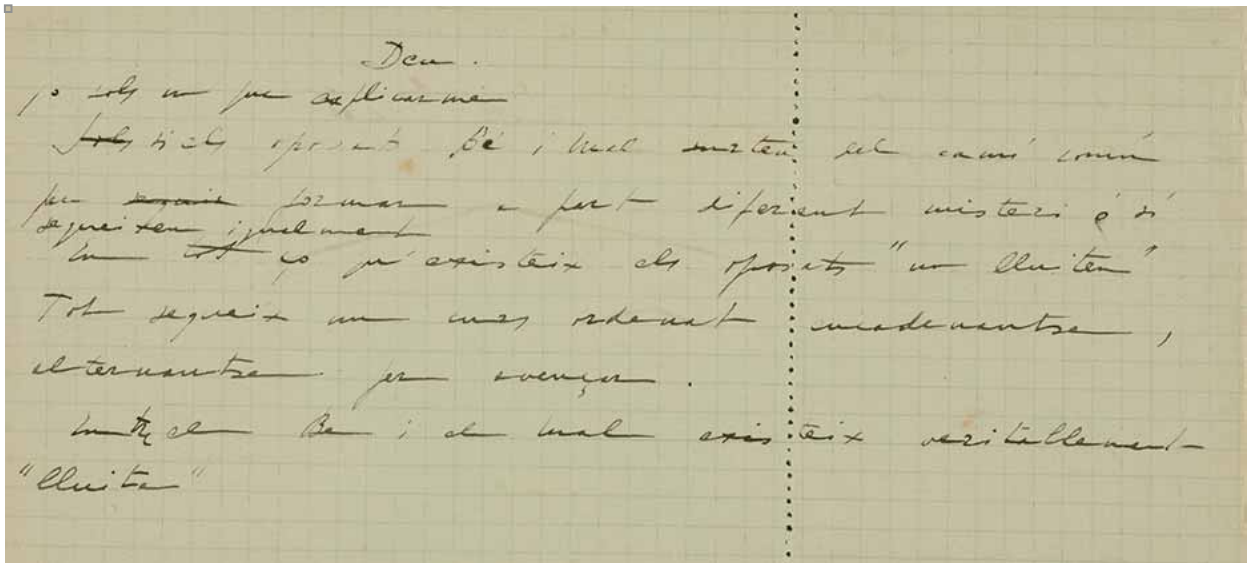 Deu.
jo sols un puc explicarme
Sols si els oposats Bé i Mal surten del camí comú
per seguir formar a part diferent misteri ó si
segueixen igualment
En tot ço qu'existeix els oposats "no lluiten"
Tot segueix un curs ordenat encadenantse,
alternantse per avençar.
Entre el Be i el mal existeix veritallement
"lluita"